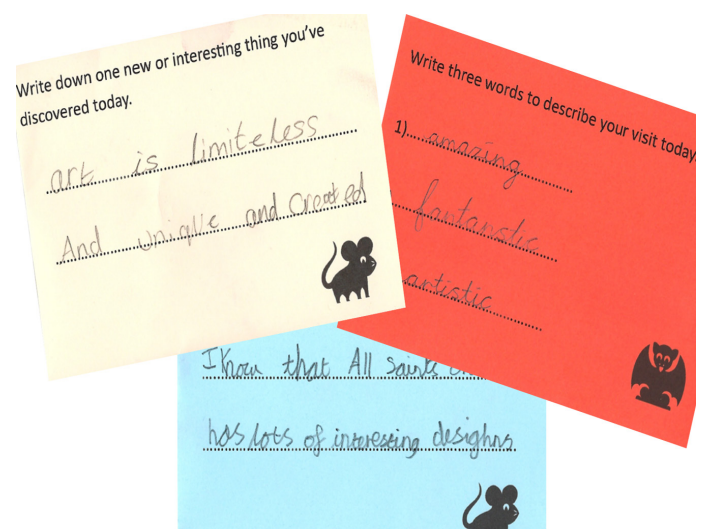 Write down one new or interesting thing you've
discovered today.
art is limiteless
And uniqUe and Created
Write three words to describe your visit today.
1) amazing
fantanstic
artistic
I Know that All saints
has lots of interesting desighns